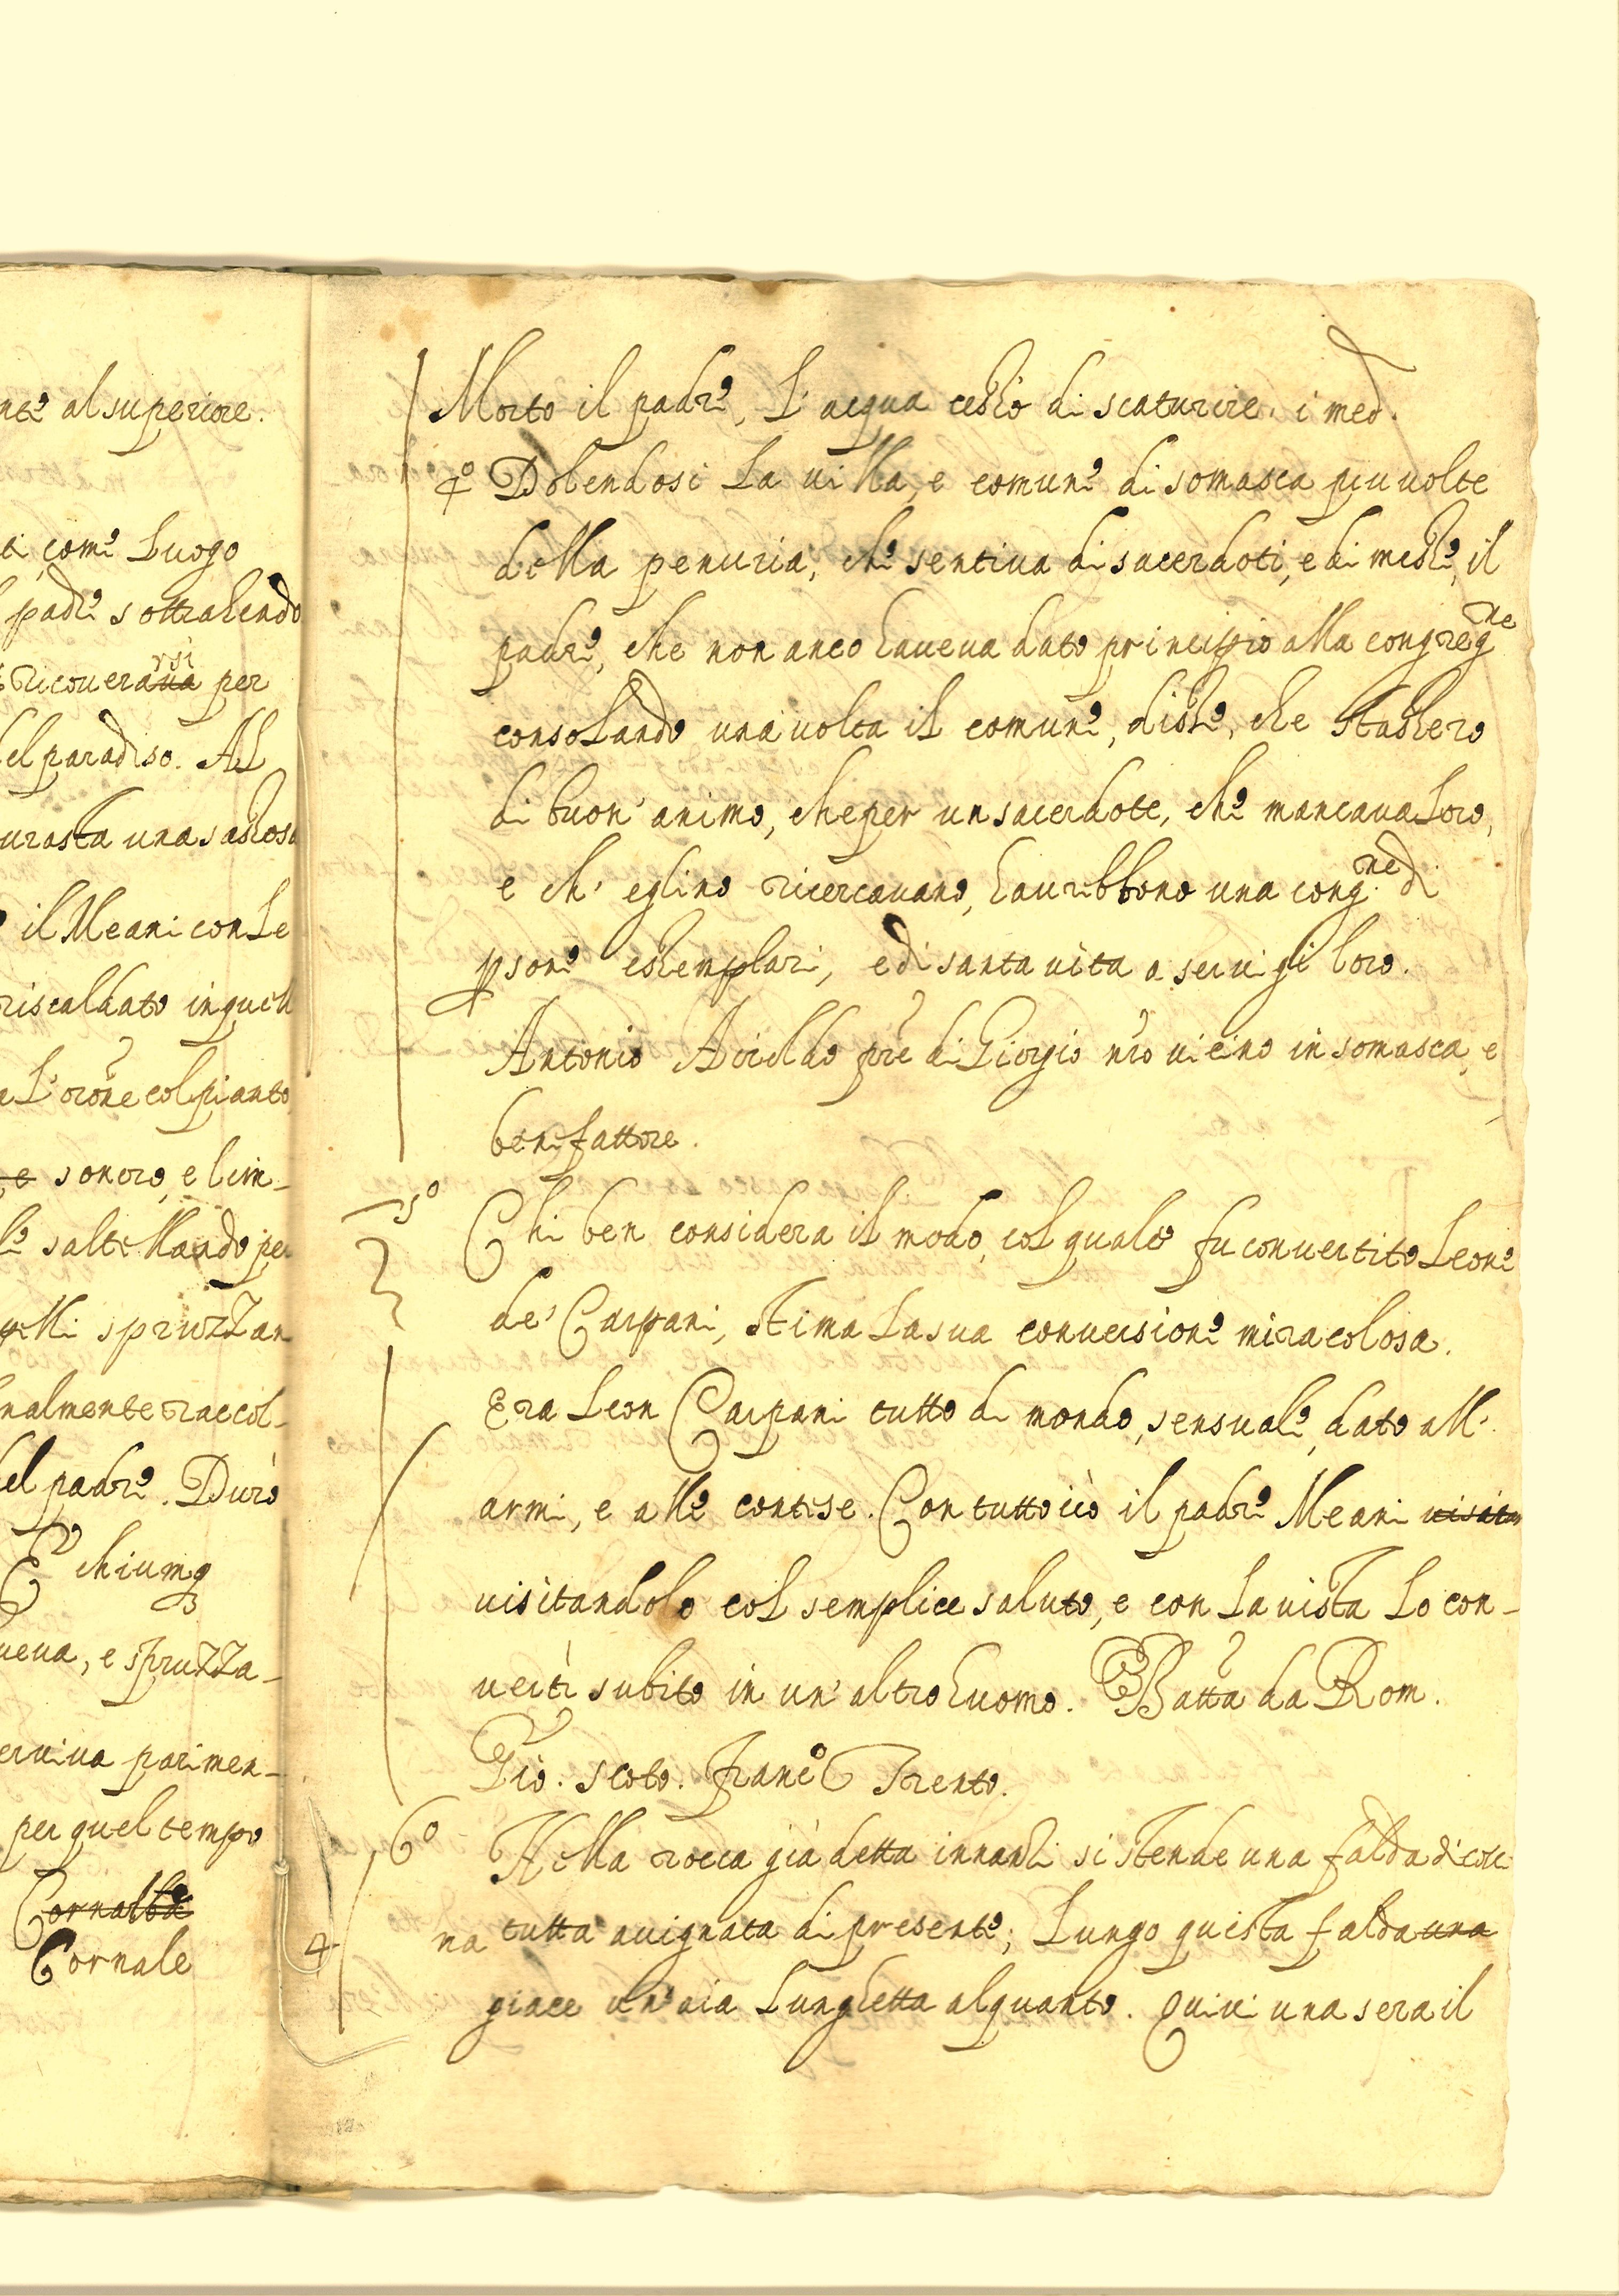 nte al superiore.
come Luogo
padre sottrahendo
ricouerauarsi per
el paradiso. Al
urasta una sassosa
il Meani con Le
riscaldato in quell
L'orone col pianto
e sonoro, e lim-
saltellando per
elli spruzzan
nalmente raccol-
el padre. Durò
E chiunq
ueua, e spruzza-
eruiua parimen-
per quel tempo
Cornalba
Cornale
Morto il padre, L'acqua cessò di scaturire. i med.
4o Dolendosi La uilla, e comune di somasca piu uolte
della penuria, che sentiua di sacerdoti, e di messe, il
padre, che non anco haueua dato principio alla congregne
consolando una uolta il comune, disse, che stassero
di buon' animo, che per un sacerdote, che mancaua Loro,
e ch' eglino ricercauano, haurebbono una congne. di
psone essemplari, e di santa uita a seruigi loro.
Antonio Airoldo pre di Giorgio nro uicino in somasca, e
benefattore.
5o Chi ben considera il modo, col quale fu conuertito Leone
de' Carpani, stima La sua conuersione miracolosa.
Era Leon Carpani tutto di mondo, sensuale, dato all'
armi, e alle contese. Con tutto ciò il padre Meani uisitan
uisitandolo col semplice saluto, e con La uista Lo con-
uertì subito in un' altro huomo. GBatta da Rom.
Gio. Scoto. Franco Trento.
6o Nella rocca già detta innanzi si stende una falda di colli
na tutta auignata di presente; Lungo questa falda una
4 giace un' aia Lunghetta alquanto. Quiui una sera il